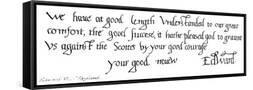 We have at good length understanded to our great
comfort, the good success, it hathe pleased god to graunt
us against the Scottes by your good courage
your good neuew Edward